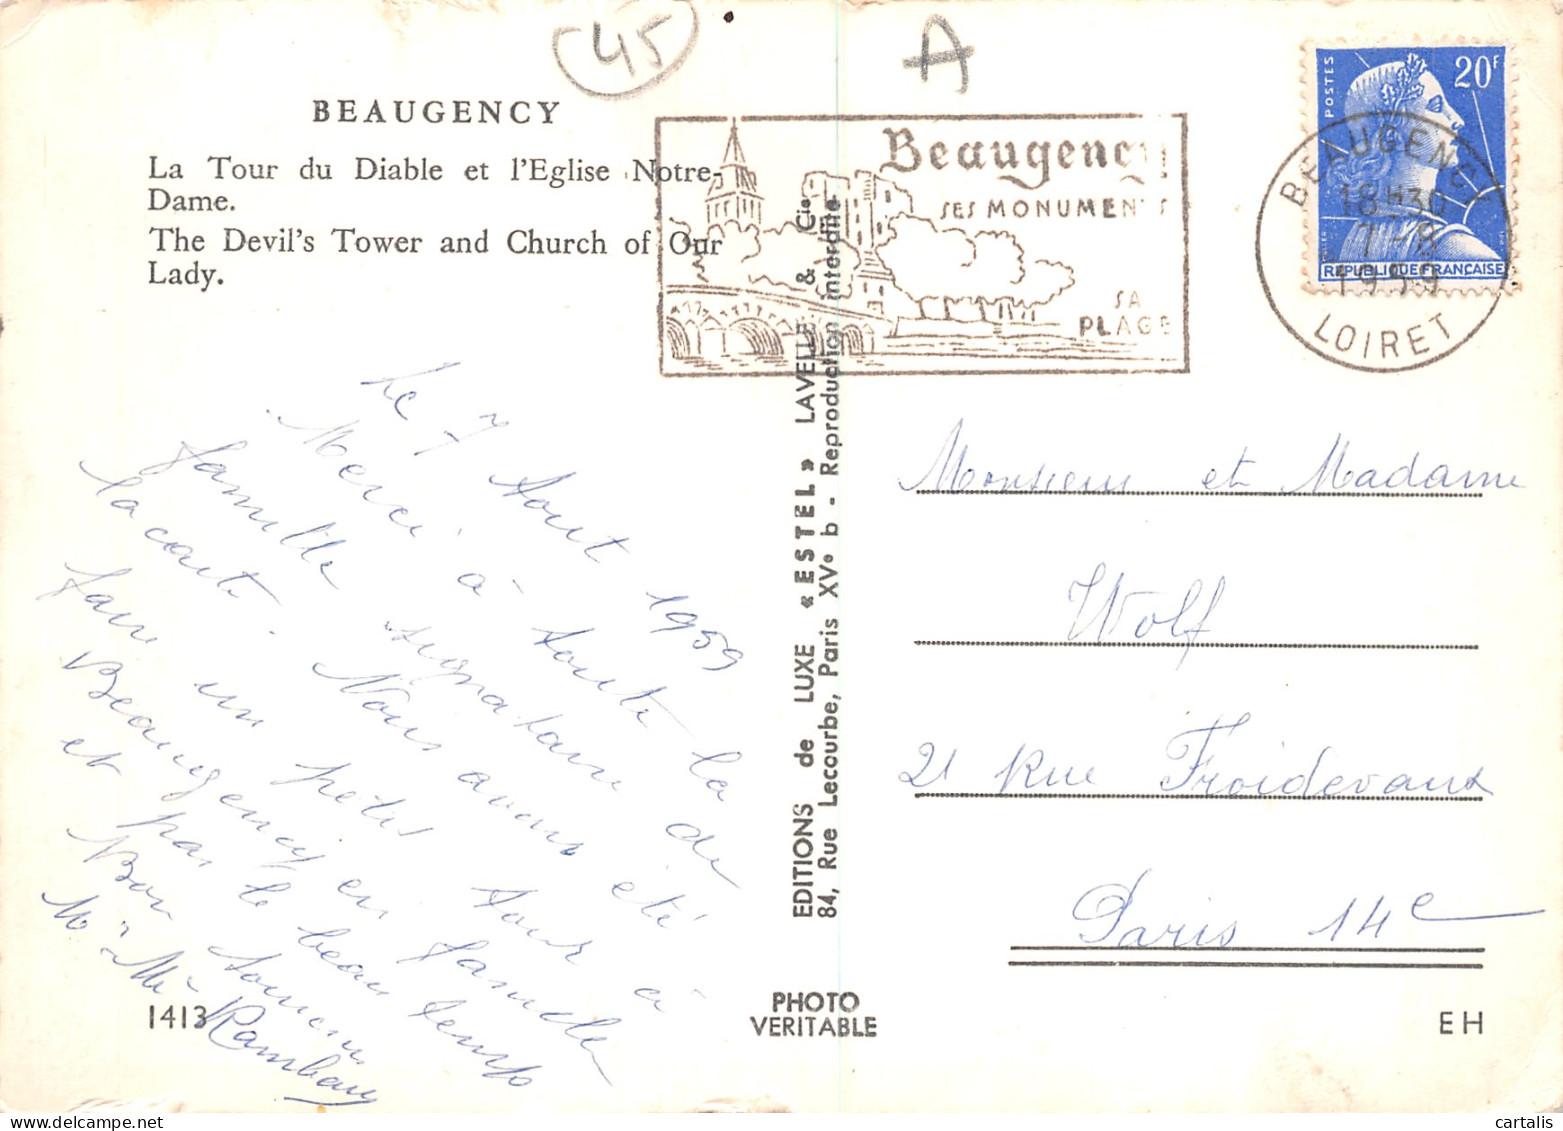 45
A
BEAUGENCY
La Tour du Diable et l'Eglise Notre-
Dame.
The Devil's Tower and Church of Our
Lady.
Beaugency
SES MONUMENTS
SA
PLAGE
POSTES
20F
REPUBLIQUE FRANÇAISE
BEAUGENCY
18H30
7-8
1959
LOIRET
Le 7 Aout 1959
Merci à toute la
famille signataire de
la carte. Nous avons été
faire un petit tour à
Beaugency en famille
et par le beau temps
Bon souvenir
Mr Me
EDITIONS de LUXE «ESTEL» LAVELLE & Cie
84, Rue Lecourbe, Paris XVe b - Reproduction interdite
Monsieur et Madame
Wolf
21 Rue Froidevaux
Paris 14e
1413
PHOTO
VERITABLE
EH
cartalis